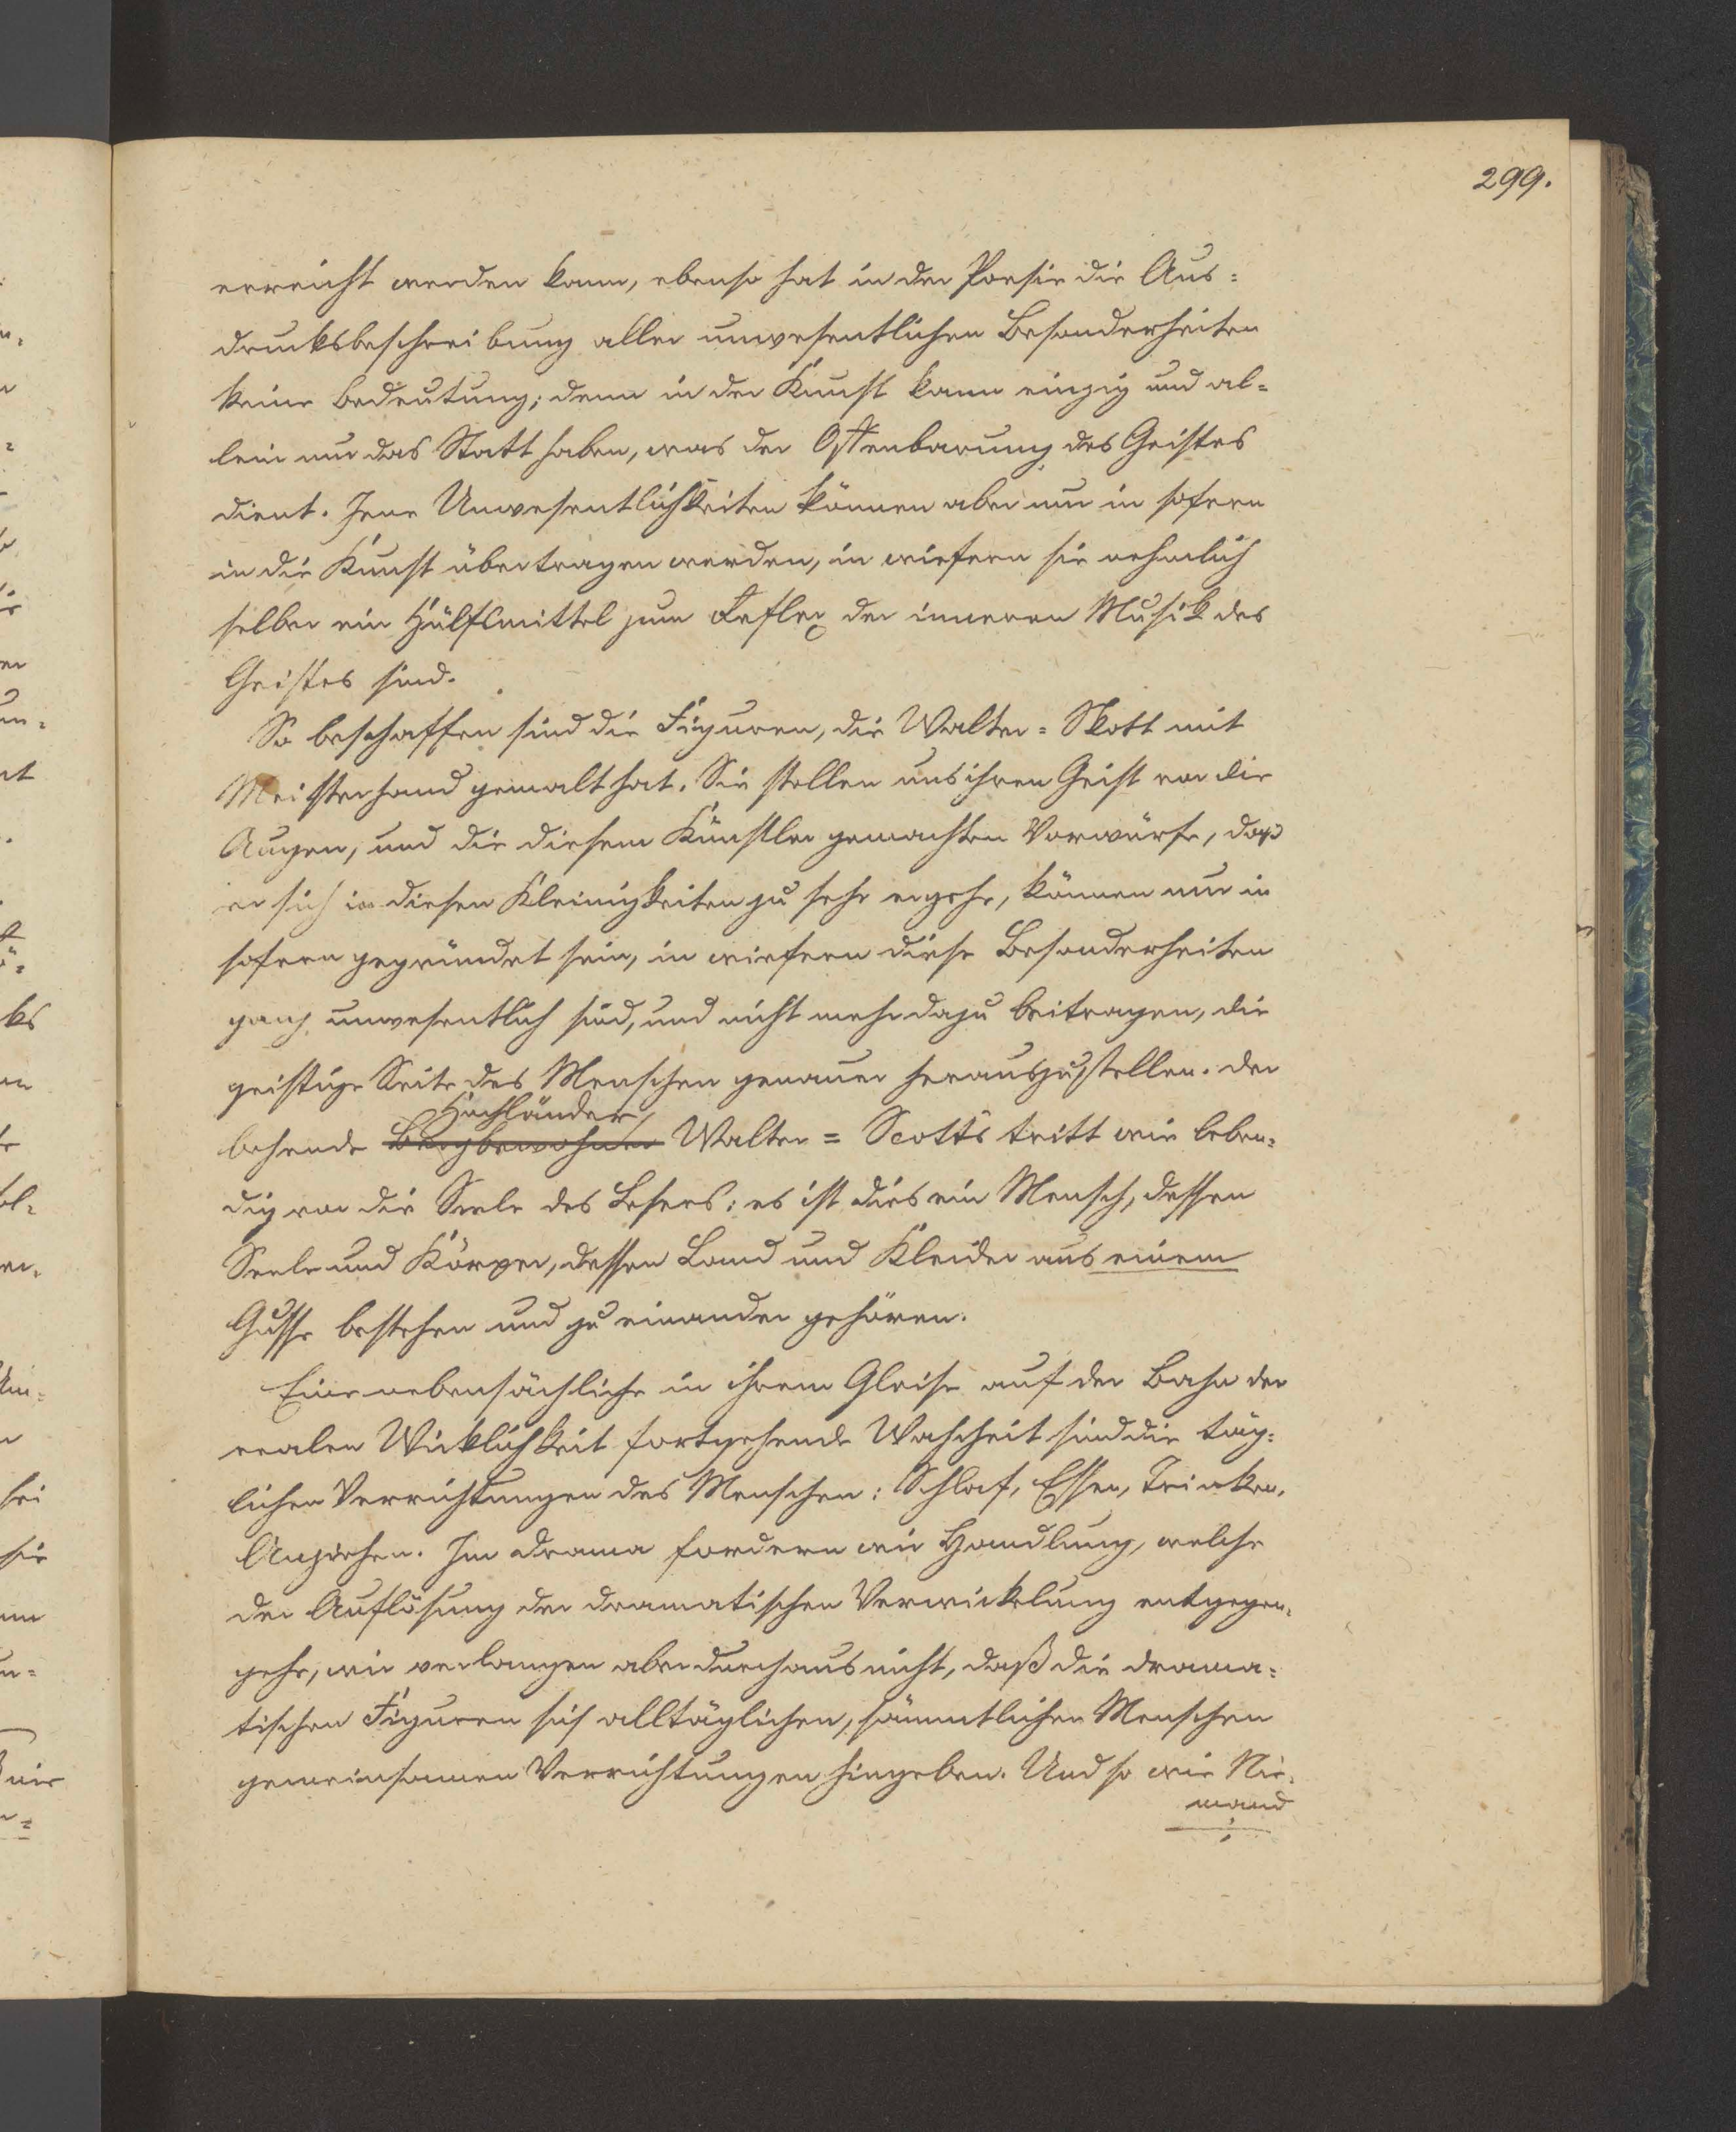 299.
erreicht werden kann, ebenso hat in der Poesie die Aus=
drucksbeschreibung aller unwesentlichen Besonderheiten
keine Bedeutung; denn in der Kunst kann einzig und al=
lein nur das Statt haben, was der Offenbarung des Geistes
dient. Jene Unwesentlichkeiten können aber nur in sofern
in die Kunst übertragen werden, in wiefern sie nehmlich
selber ein Hülfsmittel zum Reflex der inneren Musik des
Geistes sind.
So beschaffen sind die Figuren, die Walter=Skott mit
Meisterhand gemalt hat. Sie stellen uns ihren Geist vor die
Augen, und die diesem Künstler gemachten Vorwürfe, daß
er sich in diesen Kleinigkeiten zu sehr ergehe, können nur in
sofern gegründet sein, in wiefern diese Besonderheiten
ganz unwesentlich sind, und nicht mehr dazu beitragen, die
geistige Seite des Menschen genauer herauszustellen. Der
Hochländer
behende Bergbewohner Walter=Scotts tritt wie leben=
dig vor die Seele des Lesers: es ist dies ein Mensch, dessen
Seele und Körper, dessen Land und Kleider aus einem
Gusse bestehen und zu einander gehören.
Eine nebensächliche in ihrem Gleise auf der Bahn der
realen Wirklichkeit fortgehende Wahrheit sind die täg=
lichen Verrichtungen des Menschen: Schlaf, Essen, Trinken,
Anziehen. Im Drama fordern wir Handlung, welche
der Auflösung der dramatischen Verwickelung entgegen=
gehe, wir verlangen aber durchaus nicht, daß die drama=
tischen Figuren sich alltäglichen, sämmtlichen Menschen
gemeinsamen Verrichtungen hingeben. Und so wie Nie=
mand